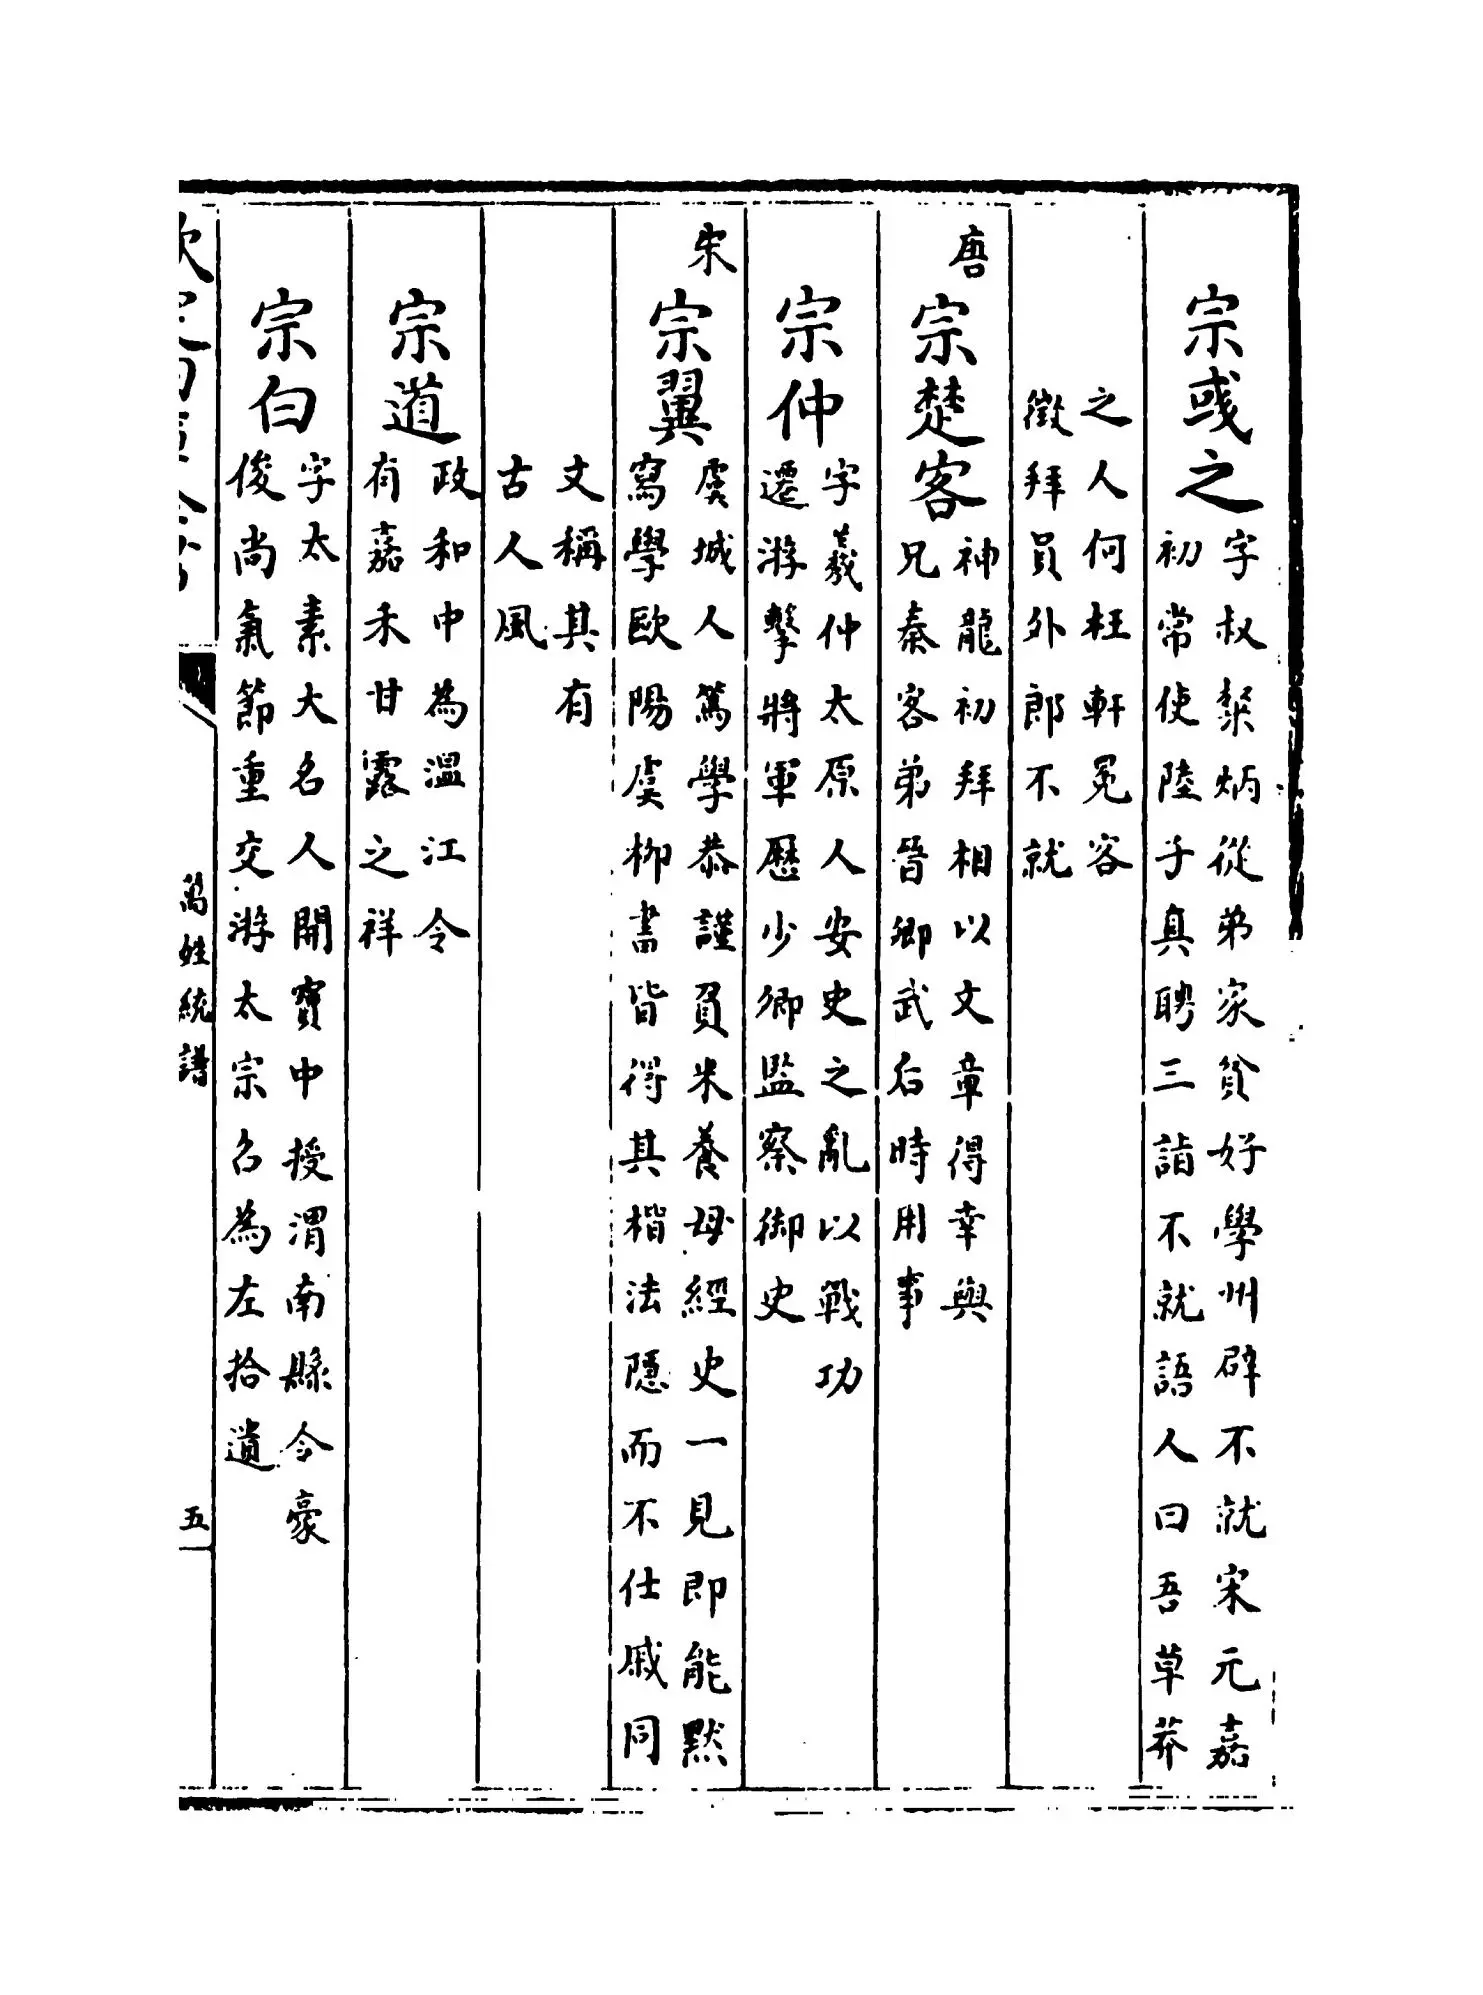 宗彧之
字叔粲炳從弟家貧好學州辟不就宋元嘉
初常使陸子真聘三詣不就語人曰吾草莽
之人何枉軒冕容
徵拜員外郎不就
唐
宗楚客
神龍初拜相以文章得幸與
兄秦客弟晉卿武后時用事
宗仲
字羲仲太原人安史之亂以戰功
遷游擊將軍歷少卿監察御史
宋
宗翼
虞城人篤學恭謹負米養母經史一見即能默
寫學歐陽虞柳書皆得其楷法隱而不仕戚同
文稱其有
古人風
宗道
政和中為溫江令
有嘉禾甘露之祥
宗白
字太素大名人開寶中授渭南縣令豪
俊尚氣節重交游太宗名為左拾遺
萬姓統譜
五